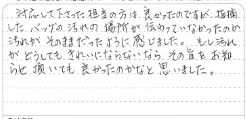 対応して下さった担当の方は良かったのですが、指摘
したバッグの汚れの場所が伝わっていなかったのか
汚れがそのままだったように感じました。もし汚れ
がどうしてもきれいにならないなら、その旨をお知
らせ頂いても良かったのかなと思いました。